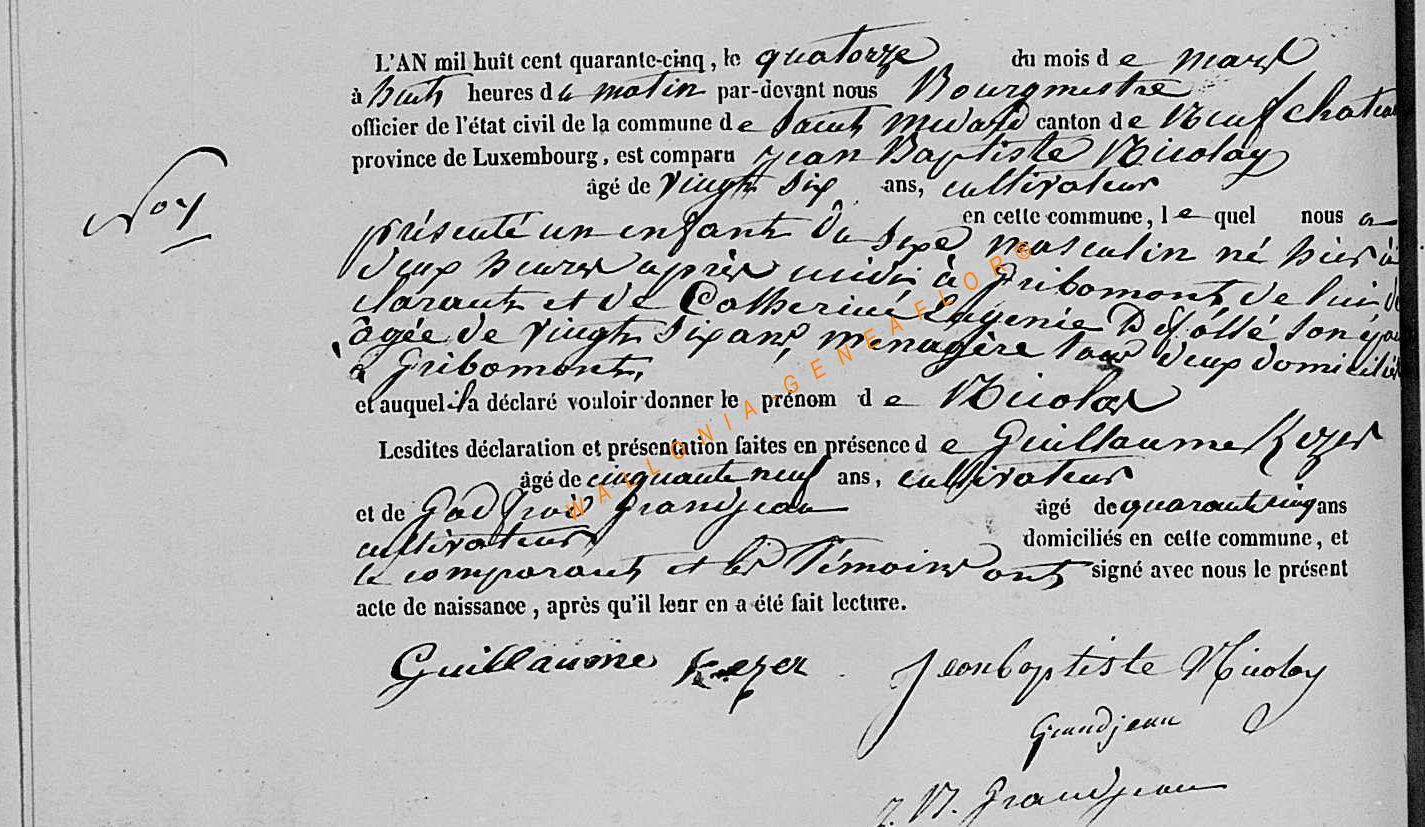 L'AN mil huit cent quarante-cinq, le quatorze du mois de mars
à huit heures du matin par-devant nous Bourgmestre
officier de l'état civil de la commune de Saint Médard canton de Neufchateau
province de Luxembourg, est comparu Jean Baptiste Nicolay
âgé de vingt six ans, cultivateur
en cette commune, lequel nous a
présenté un enfant du sexe masculin né hier à
deux heures après midi à Gribomont de lui dé
clarant et de Catherine Eugénie
âgée de vingt six ans, ménagère tous deux domiciliés
à Gribomont,
et auquel il a déclaré vouloir donner le prénom de Nicolas
Lesdites déclaration et présentation faites en présence de Guillaume Kezer
âgé de cinquante neuf ans, cultivateur
et de Godfroid Grandjean âgé de quarante cinq ans
cultivateurs domiciliés en cette commune, et
le comparant et les témoins ont signé avec nous le présent
acte de naissance, après qu'il leur en a été fait lecture.
Guillaume Kezer Jean baptiste Nicolay
Grandjean
Grandjean
WALLONIA GENEAFLOR®